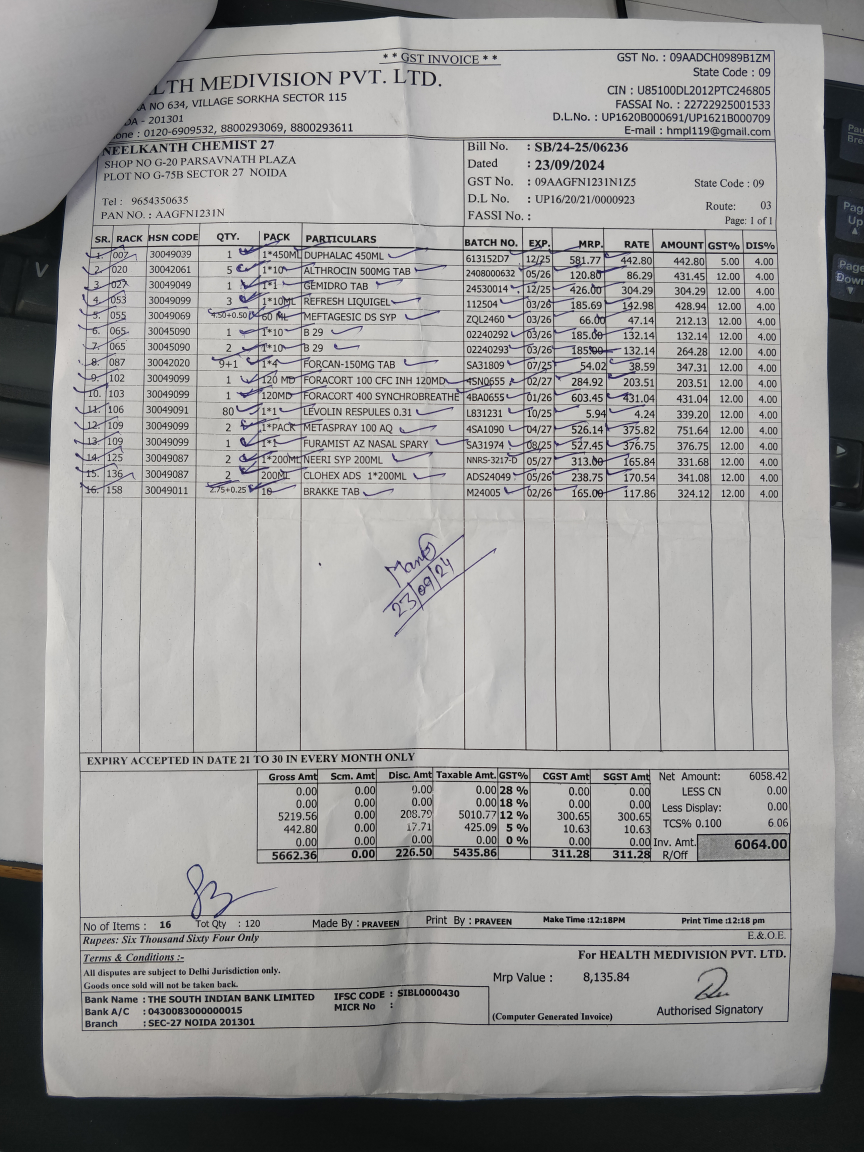 * * GST INVOICE * *
GST No. : 09AADCH0989B1ZM
State Code : 09
LTH MEDIVISION PVT. LTD.
CIN : U85100DL2012PTC246805
NO 634, VILLAGE SORKHA SECTOR 115
FASSAI No. : 22722925001533
DA - 201301
D.L.No. : UP1620B000691/UP1621B000709
one : 0120-6909532, 8800293069, 8800293611
E-mail : hmpl119@gmail.com
NEELKANTH CHEMIST 27
SHOP NO G-20 PARSAVNATH PLAZA
PLOT NO G-75B SECTOR 27 NOIDA
Tel : 9654350635
PAN NO. : AAGFN1231N
Bill No. : SB/24-25/06236
Dated : 23/09/2024
GST No. : 09AAGFN1231N1Z5 State Code : 09
D.L No. : UP16/20/21/0000923
Route: 03
FASSI No. :
Page: 1 of 1
SR. RACK HSN CODE QTY. PACK PARTICULARS BATCH NO. EXP. MRP. RATE AMOUNT GST% DIS%
1. 007 30049039 1 1*450ML DUPHALAC 450ML 613152D7 12/25 581.77 442.80 442.80 5.00 4.00
2. 020 30042061 5 1*10 ALTHROCIN 500MG TAB 2408000632 05/26 120.80 86.29 431.45 12.00 4.00
3. 027 30049049 1 1*1 GEMIDRO TAB 24530014 12/25 426.00 304.29 304.29 12.00 4.00
4. 053 30049099 3 1*10ML REFRESH LIQUIGEL 112504 03/26 185.69 142.98 428.94 12.00 4.00
5. 055 30049069 4.50+0.50 60 ML MEFTAGESIC DS SYP ZQL2460 03/26 66.00 47.14 212.13 12.00 4.00
6. 065 30045090 1 1*10 B 29 02240292 03/26 185.00 132.14 132.14 12.00 4.00
7. 065 30045090 2 1*10 B 29 02240293 03/26 185.00 132.14 264.28 12.00 4.00
8. 087 30042020 9+1 1*4 FORCAN-150MG TAB SA31809 07/25 54.02 38.59 347.31 12.00 4.00
9. 102 30049099 1 120 MD FORACORT 100 CFC INH 120MD 4SN0655 02/27 284.92 203.51 203.51 12.00 4.00
10. 103 30049099 1 120MD FORACORT 400 SYNCHROBREATHE 4BA0655 01/26 603.45 431.04 431.04 12.00 4.00
11. 106 30049091 80 1*1 LEVOLIN RESPULES 0.31 L831231 10/25 5.94 4.24 339.20 12.00 4.00
12. 109 30049099 2 1*PACK METASPRAY 100 AQ 4SA1090 04/27 526.14 375.82 751.64 12.00 4.00
13. 109 30049099 1 1*1 FURAMIST AZ NASAL SPARY SA31974 08/25 527.45 376.75 376.75 12.00 4.00
14. 125 30049087 2 1*200ML NEERI SYP 200ML NNRS-3217-D 05/27 313.00 165.84 331.68 12.00 4.00
15. 136 30049087 2 200ML CLOHEX ADS 1*200ML ADS24049 05/26 238.75 170.54 341.08 12.00 4.00
16. 158 30049011 2.75+0.25 10 BRAKKE TAB M24005 02/26 165.00 117.86 324.12 12.00 4.00
23/09/24
EXPIRY ACCEPTED IN DATE 21 TO 30 IN EVERY MONTH ONLY
Gross Amt Scm. Amt Disc. Amt Taxable Amt. GST% CGST Amt SGST Amt
0.00 0.00 0.00 0.00 28 % 0.00 0.00
0.00 0.00 0.00 0.00 18 % 0.00 0.00
5219.56 0.00 208.79 5010.77 12 % 300.65 300.65
442.80 0.00 17.71 425.09 5 % 10.63 10.63
0.00 0.00 0.00 0.00 0 % 0.00 0.00
5662.36 0.00 226.50 5435.86 311.28 311.28
Net Amount: 6058.42
LESS CN 0.00
Less Display: 0.00
TCS% 0.100 6.06
Inv. Amt. 6064.00
R/Off
No of Items : 16 Tot Qty : 120 Made By : PRAVEEN Print By : PRAVEEN Make Time :12:18PM Print Time :12:18 pm
Rupees: Six Thousand Sixty Four Only E.& O.E.
Terms & Conditions :-
All disputes are subject to Delhi Jurisdiction only.
Goods once sold will not be taken back.
Bank Name : THE SOUTH INDIAN BANK LIMITED IFSC CODE : SIBL0000430
Bank A/C : 0430083000000015 MICR No :
Branch : SEC-27 NOIDA 201301
For HEALTH MEDIVISION PVT. LTD.
Mrp Value : 8,135.84
(Computer Generated Invoice) Authorised Signatory
Pau
Brea
Pag
Up
Page
Down